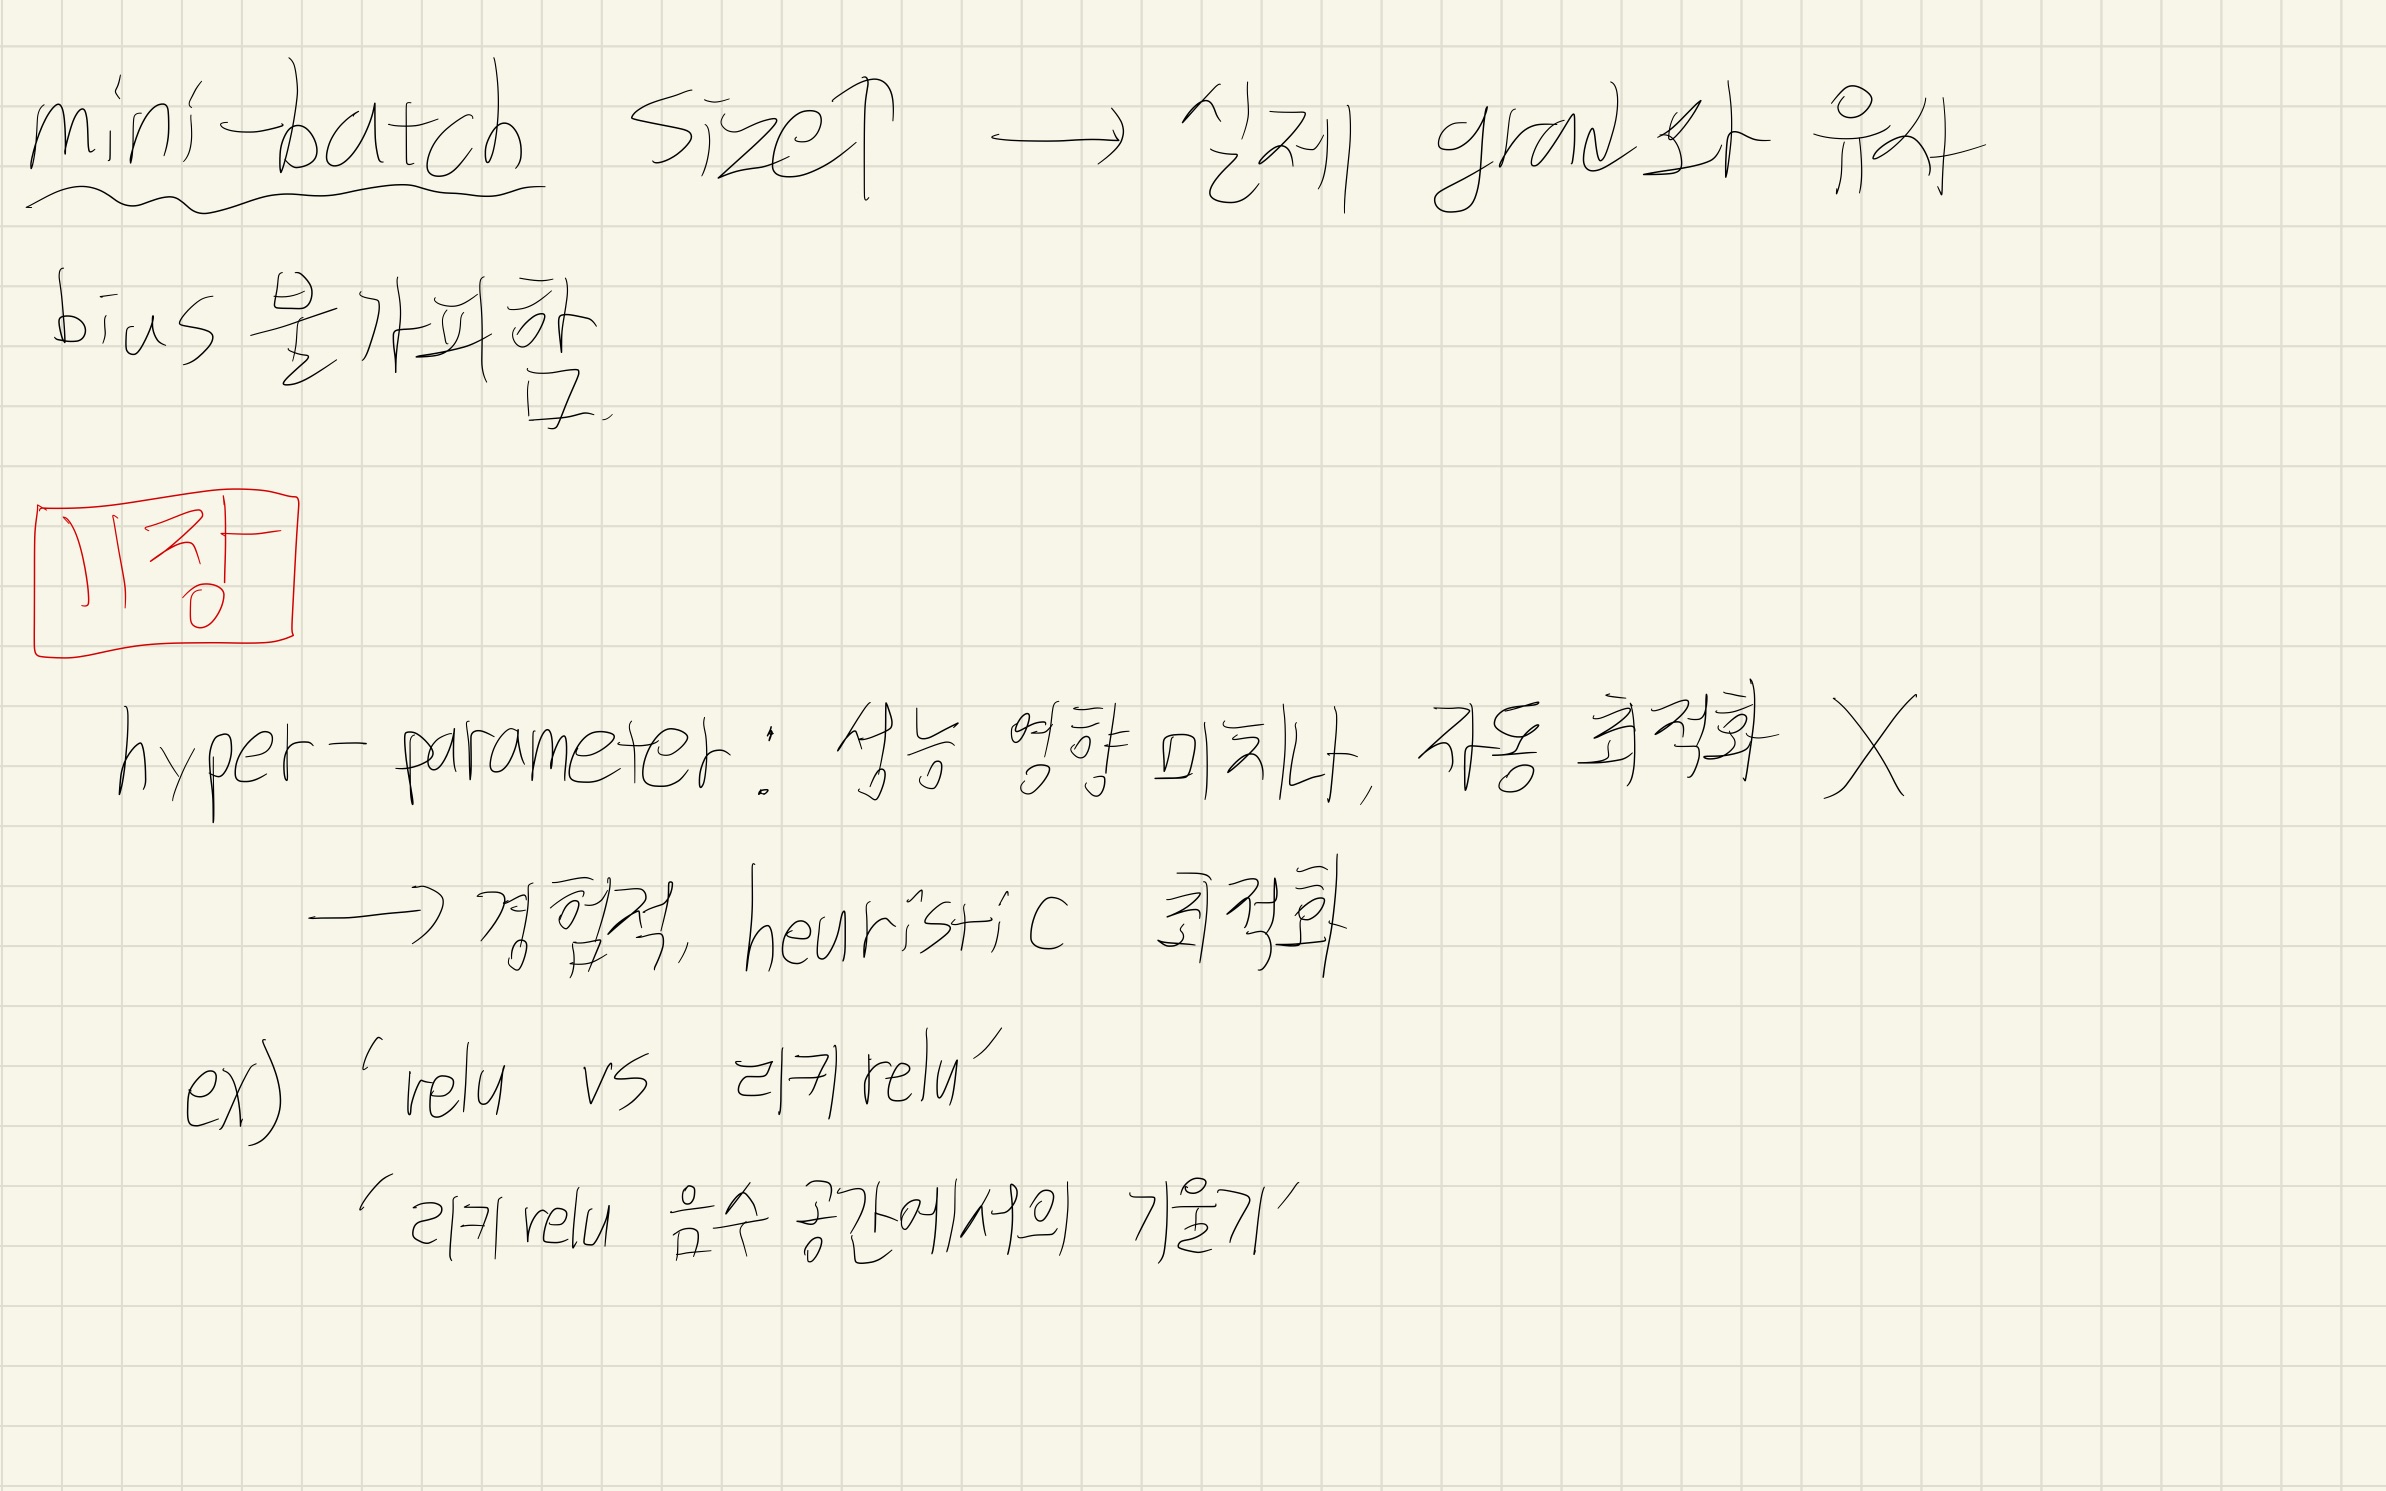 mini-batch size↑ → 실제 grad와 유사
bias 불가피함.
기장
hyper-parameter : 성능 영향 미치나, 자동 최적화 X
→ 경험적, heuristic 최적화
ex) 'relu vs 리키 relu'
'리키 relu 음수 공간에서의 기울기'